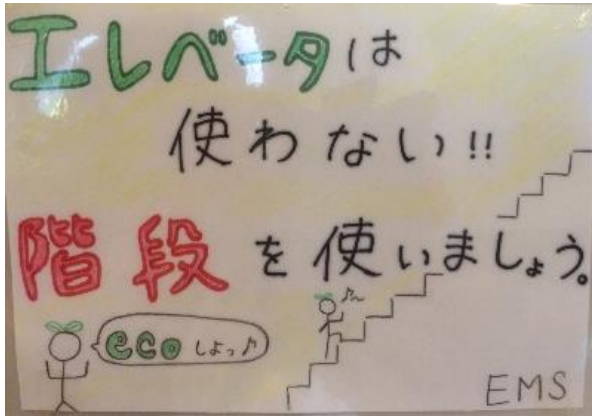 エレベータは
使わない!!
階段を使いましょう。
ecoしよっ♪
EMS